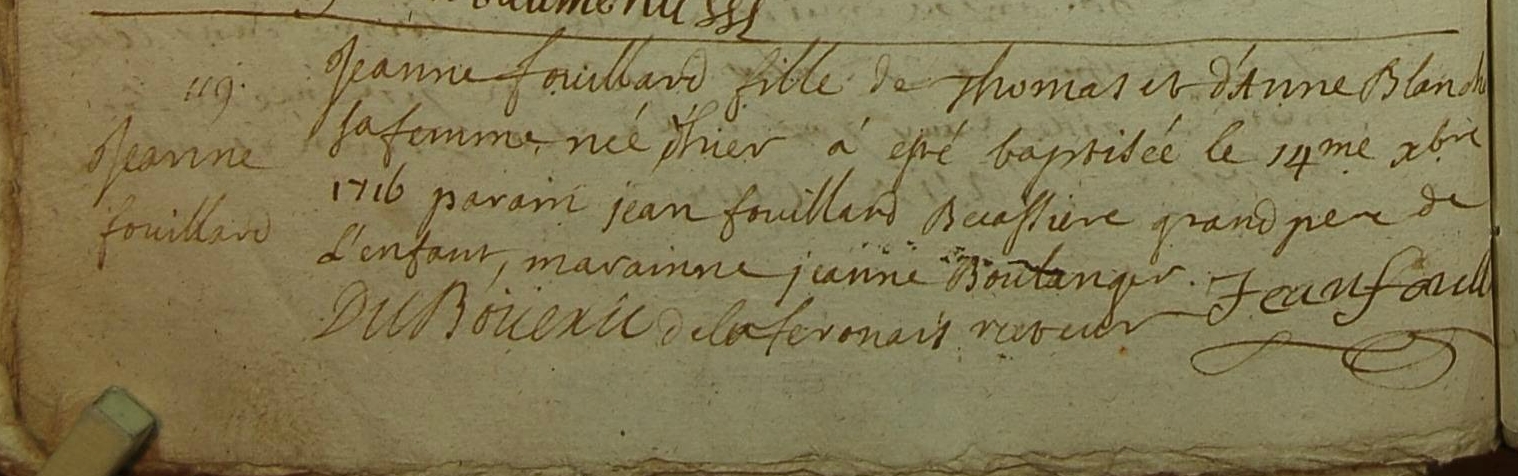 119.
Jeanne
fouillard
Jeanne fouillard fille de Thomas et d'Anne Blanch
sa femme, née d'hier à esté baptisée le 14me xbre
1716 parain jean fouillard Becassiere grand pere de
L'enfant, marainne jeanne Boulanger. Jean fouill
de la feronais recteur